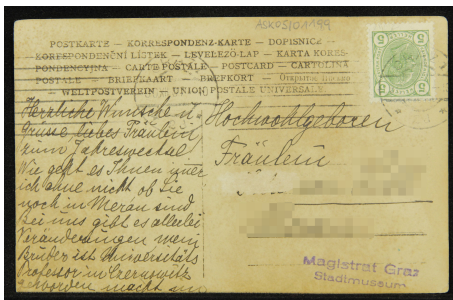 ASKOSIO1199
POSTKARTE — KORRESPONDENZ-KARTE — DOPISNICE
KORESPONDENČNÍ LÍSTEK — LEVELEZŐ-LAP — KARTA KORES-
PONDENCYJNA — CARTE POSTALE — POSTCARD — CARTOLINA
POSTALE — BRIEFKAART — BREFKORT —
— WELTPOSTVEREIN — UNION POSTALE UNIVERSELLE
5 5
Herzliche Wünsche u.
Grüsse liebes Fräulein
zum Jahreswechsel
Wie geht es Ihnen
ich ahne nicht ob Sie
noch in Meran sind
Bei uns gibt es allerlei
Veränderungen mein
Bruder ist Universitäts
Professor in Czernowitz
geworden macht
Hochwohlgeboren
Fräulein
Magistrat Graz
Stadtmuseum